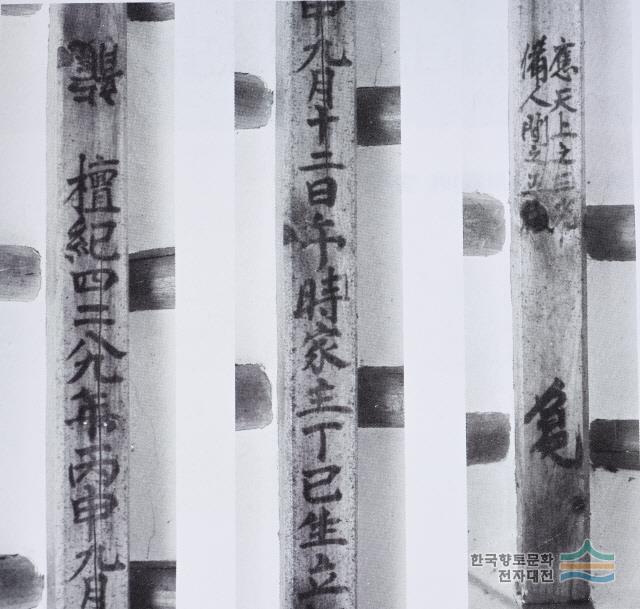 龍 檀紀四二八九年丙申九月
申九月十二日午時家主丁巳生立
應天上之三光
備人間之五
龜
한국향토문화
전자대전